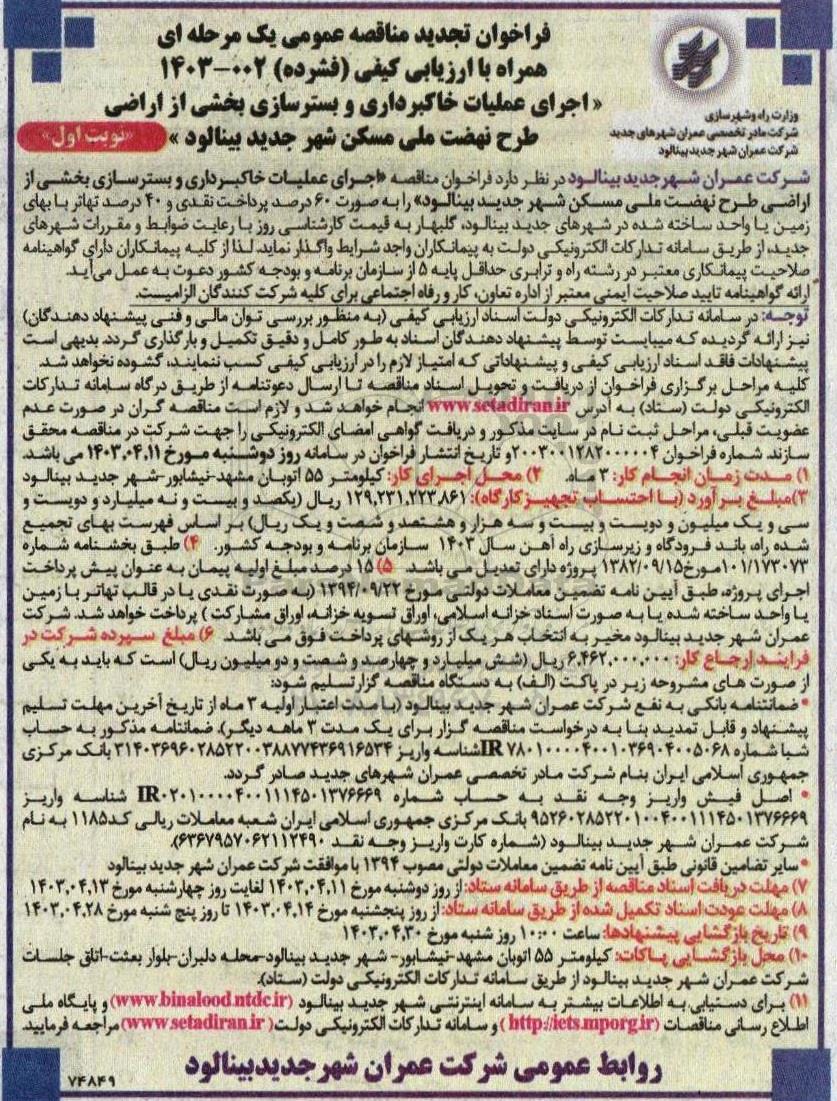 فراخوان تجدید مناقصه عمومی یک مرحله ای
همراه با ارزیابی کیفی (فشرده) ۰۰۲-۱۴۰۳
« اجرای عملیات خاکبرداری و بسترسازی بخشی از اراضی
طرح نهضت ملی مسکن شهر جدید بینالود »
«نوبت اول»
وزارت راه و شهرسازی
شرکت مادر تخصصی عمران شهرهای جدید
شرکت عمران شهر جدید بینالود
شرکت عمران شهر جدید بینالود در نظر دارد فراخوان مناقصه «اجرای عملیات خاکبرداری و بسترسازی بخشی از
اراضی طرح نهضت ملی مسکن شهر جدید بینالود» را به صورت ۶۰ درصد پرداخت نقدی و ۴۰ درصد تهاتر با بهای
زمین یا واحد ساخته شده در شهرهای جدید بینالود، گلبهار به قیمت کارشناسی روز با رعایت ضوابط و مقررات شهرهای
جدید، از طریق سامانه تدارکات الکترونیکی دولت به پیمانکاران واجد شرایط واگذار نماید. لذا از کلیه پیمانکاران دارای گواهینامه
صلاحیت پیمانکاری معتبر در رشته راه و ترابری حداقل پایه ۵ از سازمان برنامه و بودجه کشور دعوت به عمل می آید.
ارائه گواهینامه تایید صلاحیت ایمنی معتبر از اداره تعاون، کار و رفاه اجتماعی برای کلیه شرکت کنندگان الزامیست.
توجه: در سامانه تدارکات الکترونیکی دولت اسناد ارزیابی کیفی (به منظور بررسی توان مالی و فنی پیشنهاد دهندگان)
نیز ارائه گردیده که میبایست توسط پیشنهاد دهندگان اسناد به طور کامل و دقیق تکمیل و بارگذاری گردد. بدیهی است
پیشنهادات فاقد اسناد ارزیابی کیفی و پیشنهاداتی که امتیاز لازم را در ارزیابی کیفی کسب ننمایند، گشوده نخواهد شد.
کلیه مراحل برگزاری فراخوان از دریافت و تحویل اسناد مناقصه تا ارسال دعوتنامه از طریق درگاه سامانه تدارکات
الکترونیکی دولت (ستاد) به آدرس www.setadiran.ir انجام خواهد شد و لازم است مناقصه گران در صورت عدم
عضویت قبلی، مراحل ثبت نام در سایت مذکور و دریافت گواهی امضای الکترونیکی را جهت شرکت در مناقصه محقق
سازند. شماره فراخوان ۲۰۰۳۰۰۱۲۸۲۰۰۰۰۰۴ و تاریخ انتشار فراخوان در سامانه روز دوشنبه مورخ ۱۴۰۳.۰۴.۱۱ می باشد.
۱) مدت زمان انجام کار: ۳ ماه. ۲) محل اجرای کار: کیلومتر ۵۵ اتوبان مشهد-نیشابور-شهر جدید بینالود
۳)مبلغ برآورد (با احتساب تجهیز کارگاه): ۱۲۹,۲۳۱,۲۲۳,۸۶۱ ریال (یکصد و بیست و نه میلیارد و دویست و
سی و یک میلیون و دویست و بیست و سه هزار و هشتصد و شصت و یک ریال) بر اساس فهرست بهای تجمیع
شده راه، باند فرودگاه و زیرسازی راه آهن سال ۱۴۰۳ سازمان برنامه و بودجه کشور. ۴) طبق بخشنامه شماره
۱۰۱/۱۷۳۰۷۳مورخ۱۳۸۲/۰۹/۱۵ پروژه دارای تعدیل می باشد. ۵) ۱۵ درصد مبلغ اولیه پیمان به عنوان پیش پرداخت
اجرای پروژه، طبق آیین نامه تضمین معاملات دولتی مورخ ۱۳۹۴/۰۹/۲۲ (به صورت نقدی یا در قالب تهاتر با زمین
یا واحد ساخته شده یا به صورت اسناد خزانه اسلامی، اوراق تسویه خزانه، اوراق مشارکت ) پرداخت خواهد شد. شرکت
عمران شهر جدید بینالود مخیر به انتخاب هر یک از روشهای پرداخت فوق می باشد. ۶) مبلغ سپرده شرکت در
فرایند ارجاع کار: ۶,۴۶۲,۰۰۰,۰۰۰ ریال (شش میلیارد و چهارصد و شصت و دو میلیون ریال) است که باید به یکی
از صورت های مشروحه زیر در پاکت (الف) به دستگاه مناقصه گزار تسلیم شود:
• ضمانتنامه بانکی به نفع شرکت عمران شهر جدید بینالود (با مدت اعتبار اولیه ۳ ماه از تاریخ آخرین مهلت تسلیم
پیشنهاد و قابل تمدید بنا به درخواست مناقصه گزار برای یک مدت ۳ ماهه دیگر). ضمانتنامه مذکور به حساب
شبا شماره IR ۷۸۰۱۰۰۰۰۴۰۰۱۰۳۶۹۰۴۰۰۵۰۶۸ شناسه واریز ۳۱۴۰۳۶۹۶۰۲۸۵۲۲۰۰۳۸۸۷۷۴۳۶۹۱۶۵۳۴ بانک مرکزی
جمهوری اسلامی ایران بنام شرکت مادر تخصصی عمران شهرهای جدید صادر گردد.
• اصل فیش واریز وجه نقد به حساب شماره IR۰۲۰۱۰۰۰۰۴۰۰۱۱۱۴۵۰۱۳۷۶۶۶۹ شناسه واریز
۹۵۲۶۰۲۸۵۲۲۰۱۰۰۴۰۰۱۱۱۴۵۰۱۳۷۶۶۶۹ بانک مرکزی جمهوری اسلامی ایران شعبه معاملات ریالی کد۱۱۸۵ به نام
شرکت عمران شهر جدید بینالود (شماره کارت واریز وجه نقد ۶۳۶۷۹۵۷۰۶۲۱۱۲۴۹۰).
• سایر تضامین قانونی طبق آیین نامه تضمین معاملات دولتی مصوب ۱۳۹۴ با موافقت شرکت عمران شهر جدید بینالود
۷) مهلت دریافت اسناد مناقصه از طریق سامانه ستاد: از روز دوشنبه مورخ ۱۴۰۳.۰۴.۱۱ لغایت روز چهارشنبه مورخ ۱۴۰۳.۰۴.۱۳
۸) مهلت عودت اسناد تکمیل شده از طریق سامانه ستاد: از روز پنجشنبه مورخ ۱۴۰۳.۰۴.۱۴ تا روز پنج شنبه مورخ ۱۴۰۳.۰۴.۲۸
۹) تاریخ بازگشایی پیشنهادها: ساعت ۱۰:۰۰ روز شنبه مورخ ۱۴۰۳.۰۴.۳۰
۱۰) محل بازگشایی پاکات: کیلومتر ۵۵ اتوبان مشهد-نیشابور- شهر جدید بینالود-محله دلبران-بلوار بعثت-اتاق جلسات
شرکت عمران شهر جدید بینالود از طریق سامانه تدارکات الکترونیکی دولت (ستاد).
۱۱) برای دستیابی به اطلاعات بیشتر به سامانه اینترنتی شهر جدید بینالود (www.binalood.ntdc.ir) و پایگاه ملی
اطلاع رسانی مناقصات (http://iets.mporg.ir) و سامانه تدارکات الکترونیکی دولت( www.setadiran.ir) مراجعه فرمایید.
روابط عمومی شرکت عمران شهر جدید بینالود
۷۴۸۴۹